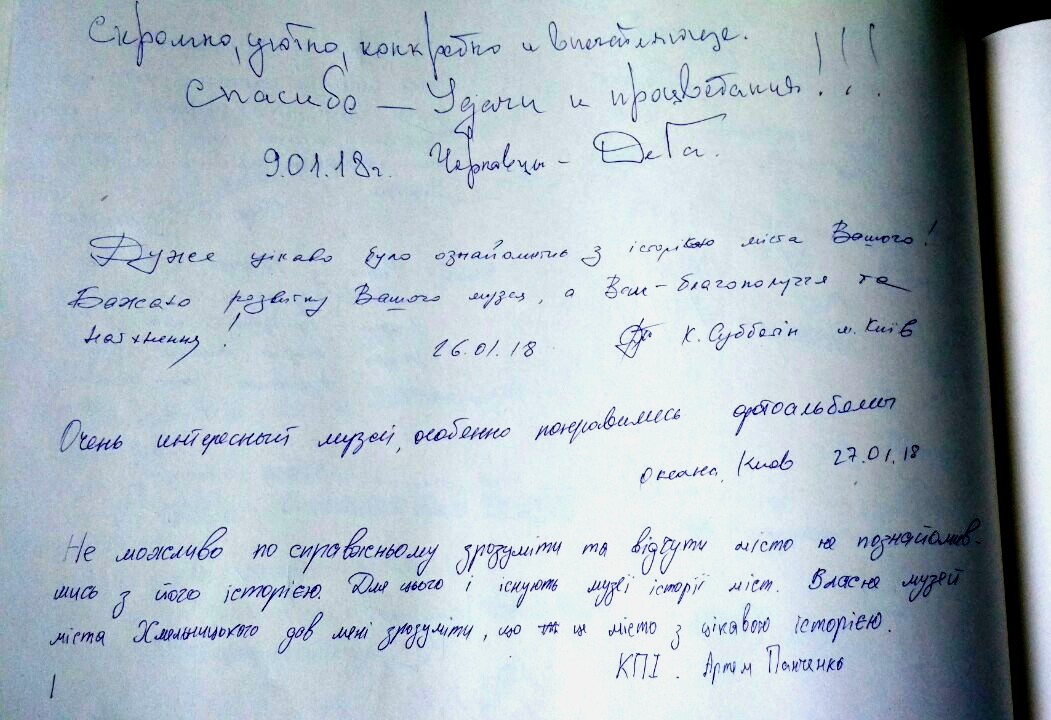 Скромно, уютно, конкретно и впечатляюще.
Спасибо — Удачи и процветания!!!
9.01.18г. Черновцы -
Дуже цікаво було ознайомитись з історією міста Вашого!
Бажаю розвитку Вашого музея, а Вам - благополуччя та
натхнення!
26.01.18 К. Субботін м. Київ
Очень интересный музей, особенно понравились фотоальбомы
Оксана, Киев 27.01.18
Не можливо по справжньому зрозуміти та відчути місто не познайомив-
шись з його історією. Для цього і існують музеї історії міст. Власне музей
міста Хмельницького дав мені зрозуміти, що це місто з цікавою історією.
КПІ. Артем Панченко